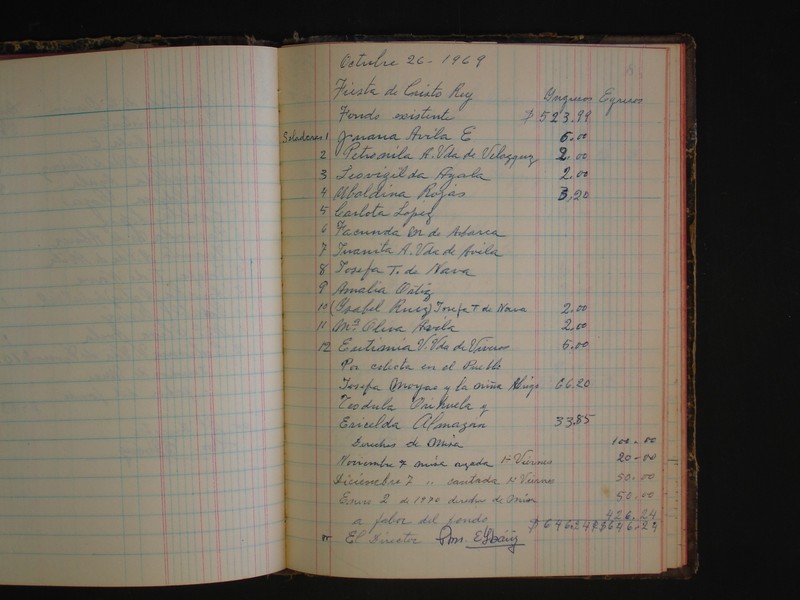 Octubre 26 - 1969
Fiesta de Cristo Rey Yngresos Egresos
Fondo existente $ 523.99
Seladoras 1 Juana Avila E 5.00
2 Petronila A. Vda de Velazquez 2.00
3 Leovigilda Ayala 2.00
4 Ubaldina Rojas 3.20
5 Carlota Lopez
6 Facunda M de Abarca
7 Juanita A. Vda de Avila
8 Josefa T. de Nava
9 Amalia Ortiz
10 (Ysabel Ruiz) Josefa T. de Nava 2.00
11 Mª Oliva Avila 2.00
12 Eutimia V. Vda de Viveros 5.00
Por colecta en el Pueblo
Josefa Moyao y la niña 66.20
Teodula Orihuela y
Ericelda Almazan 33.85
Derechos de Misa 100.00
Noviembre 7 misa rezada 1º Viernes 20.00
Diciembre 7 " cantada 1º Viernes 50.00
Enero 2 de 1970 derechos de Misa 50.00
a fabor del fondo 426.24
$ 646.24 $ 646.24
El Director